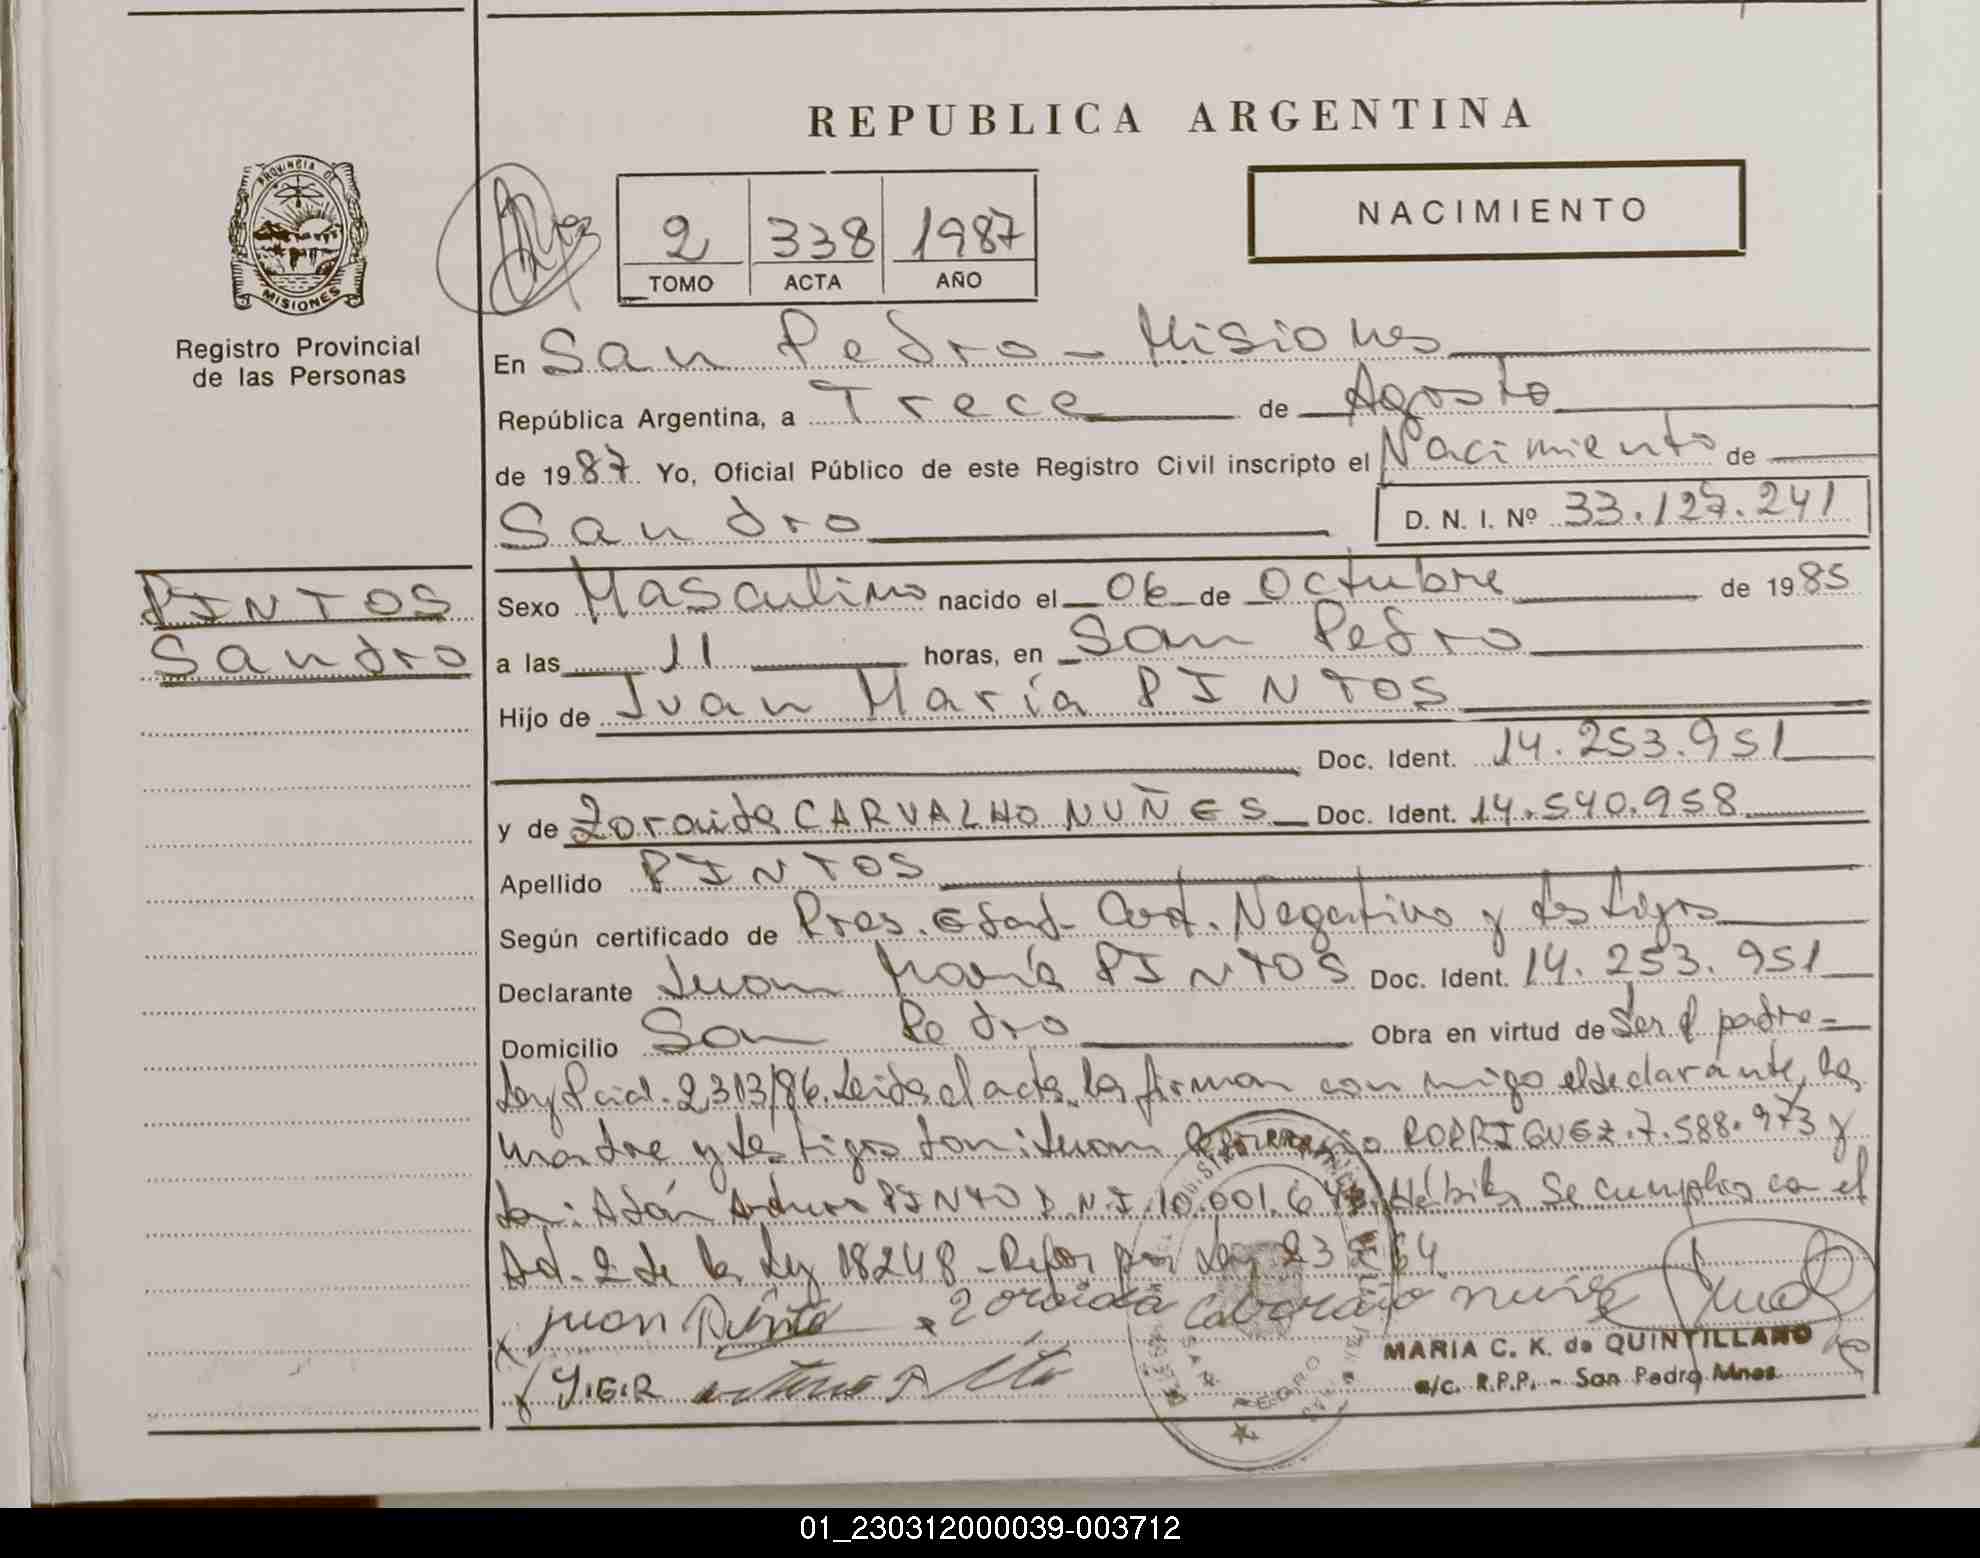 REPUBLICA ARGENTINA
PROVINCIA DE
MISIONES
Registro Provincial
de las Personas
NACIMIENTO
2 338 1987
TOMO ACTA AÑO
En San Pedro - Misiones
República Argentina, a Trece de Agosto
de 1987 Yo, Oficial Público de este Registro Civil inscripto el Nacimiento de
Sandro D. N. I. Nº 33.127.241
PINTOS
Sandro
Sexo Masculino nacido el 06 de Octubre de 1985
a las 11 horas, en San Pedro
Hijo de Juan María PINTOS
Doc. Ident. 14.253.951
y de Zoraida CARVALHO NUÑES Doc. Ident. 14.540.958
Apellido PINTOS
Según certificado de Pres. Edad Cert. Negativo y testigos
Declarante Juan María PINTOS Doc. Ident. 14.253.951
Domicilio San Pedro Obra en virtud de Ser el padre-
Ley Pcial. 2313/86. Leida el acta, la firman conmigo el declarante, la
madre y testigos Juan RODRIGUEZ. 7.588.973 y
Adán Arturo PINTO D.N.I. 10.001.6 Hábiles Se cumplio con el
Art. 2 de la Ley 18248 - Refor por Ley 23 264
Juan Pinto Zoraida nuñe
J.G.R arturo
MARIA C. K. de QUINTILLANO
a/c. R.P.P. - San Pedro Mnes.
SAN PEDRO
01_230312000039-003712